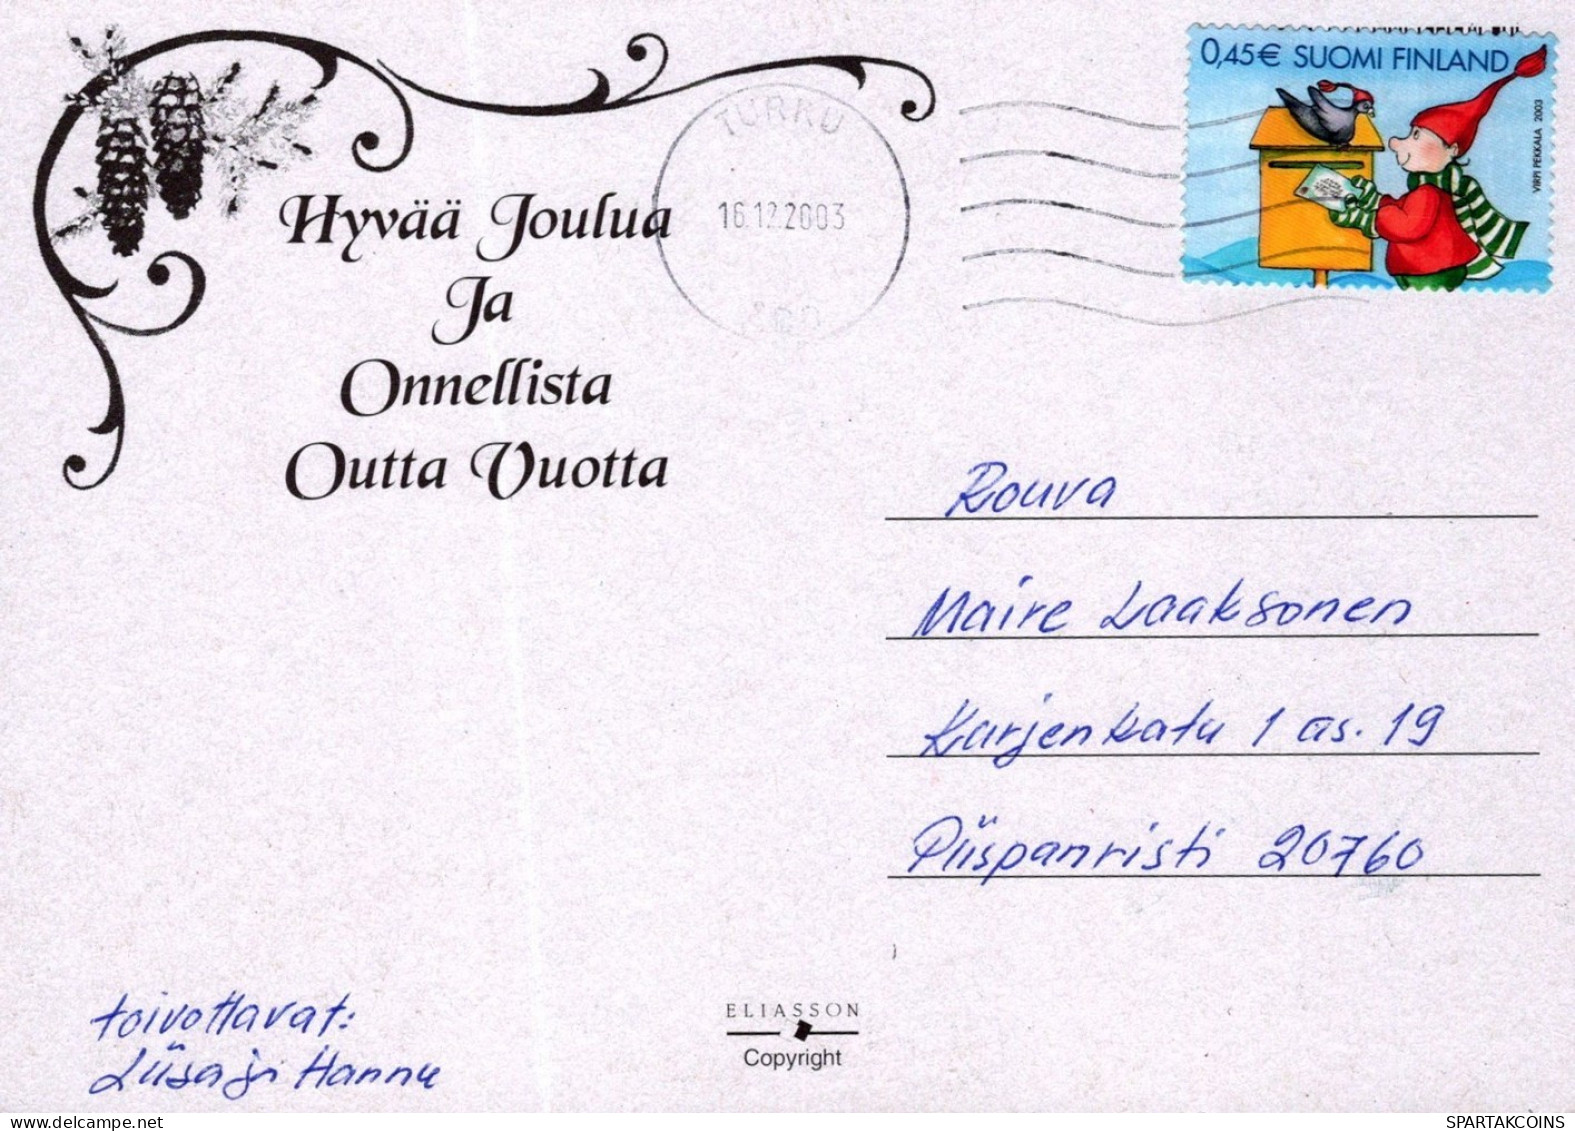 0,45€ SUOMI FINLAND
VIRPI PEKKALA 2003
TURKU
16.12.2003
Hyvää Joulua
Ja
Onnellista
Outta Vuotta
Rouva
Maire Laaksonen
Karjenkatu 1 as. 19
Piispanristi 20760
toivottavat:
Liisa ja Hannu
ELIASSON
Copyright
SPARTAKCOINS